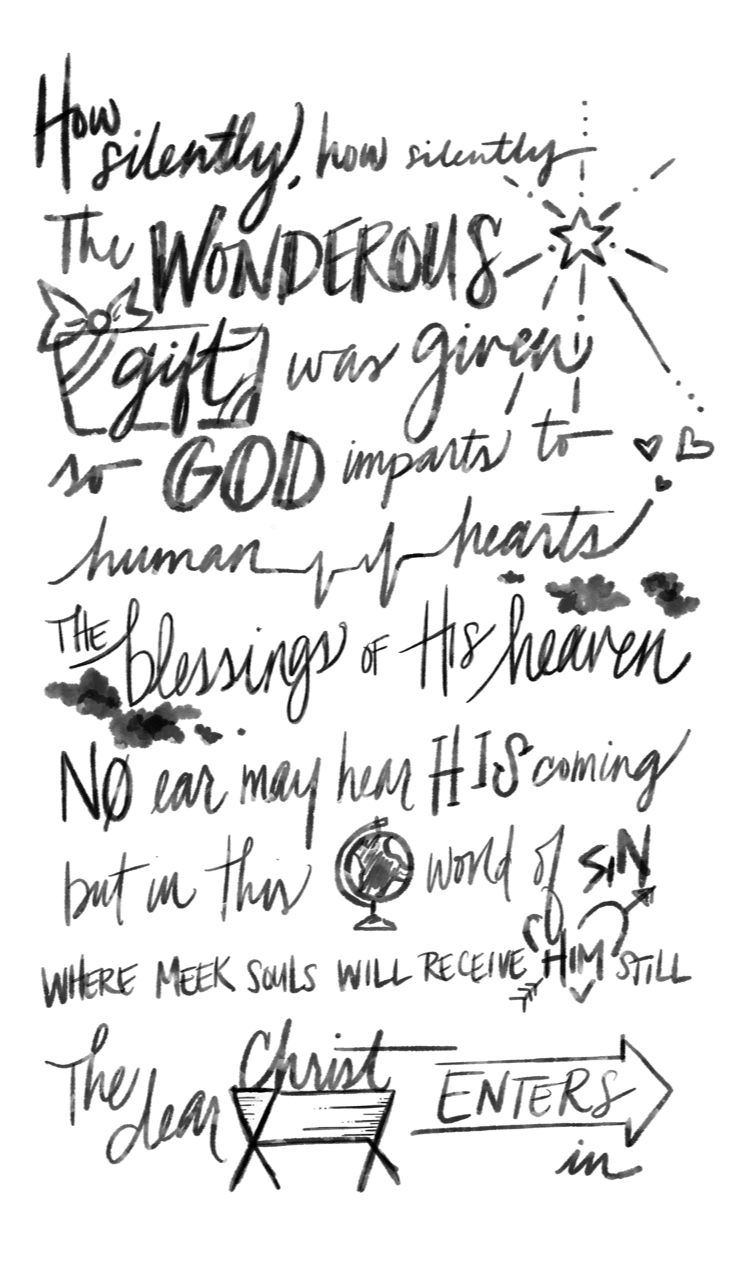 How silently, how silently
The WONDEROUS
gift was given
so GOD imparts to
human hearts
THE blessings OF HIS heaven
NO ear may hear HIS coming
but in this world of SIN
WHERE MEEK SOULS WILL RECEIVE HIM STILL
The dear Christ ENTERS
in